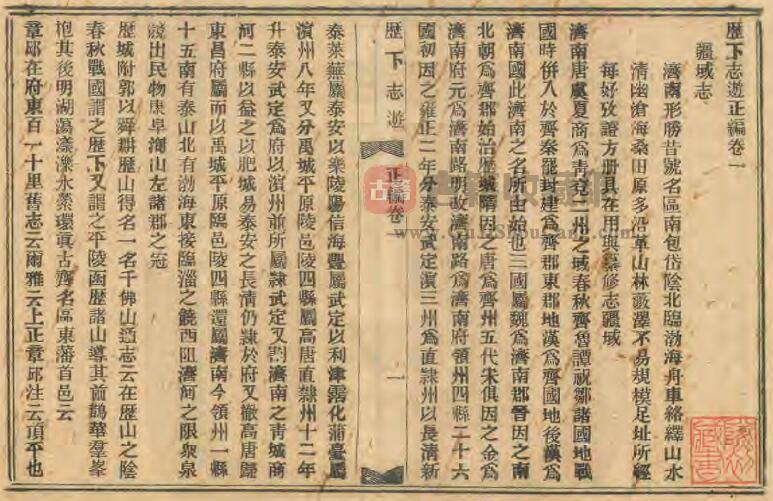 歷下志遊正編卷一
疆域志
濟南形勝昔號名區南包岱陰北臨渤海舟車絡繹山水
清幽滄海桑田原多沿革山林藪澤不易規模足址所經
每好攷證方册具在用與纂修志疆域
濟南唐虞夏商爲青兗二州之域春秋齊魯譚祝鄒諸國地戰
國時併入於齊秦罷封建爲齊郡東郡地漢爲齊國地後漢爲
濟南國此濟南之名所由始也三國屬魏爲濟南郡晉因之南
北朝爲齊郡始治歷城隋因之唐爲齊州五代宋俱因之金爲
濟南府元爲濟南路明改濟南路爲濟南府領州四縣二十六
國初因之雍正二年分泰安武定濱三州爲直隸州以長清新
歷下志遊
正編卷一
一
泰萊蕪屬泰安以樂陵陽信海豐屬武定以利津霑化蒲臺屬
濱州八年又分禹城平原陵邑陵四縣屬高唐直隸州十二年
升泰安武定爲府以濱州前所屬隸武定又割濟南之青城商
河二縣以益之以肥城易泰安之長清仍隸於府又撤高唐歸
東昌府屬而以禹城平原臨邑陵四縣還屬濟南今領州一縣
十五南有泰山北有渤海東接臨淄之饒西阻濟河之限衆泉
競出民物康阜洵山左諸郡之冠
歷城附郭以舜耕歷山得名一名千佛山通志云在歷山之陰
春秋戰國謂之歷下又謂之平陵函歷諸山導其前鵲華羣峯
抱其後明湖蕩漾濼水縈環眞古齊名區東藩首邑云
章邱在府東百一十里舊志云爾雅云上正章邱注云頂平也